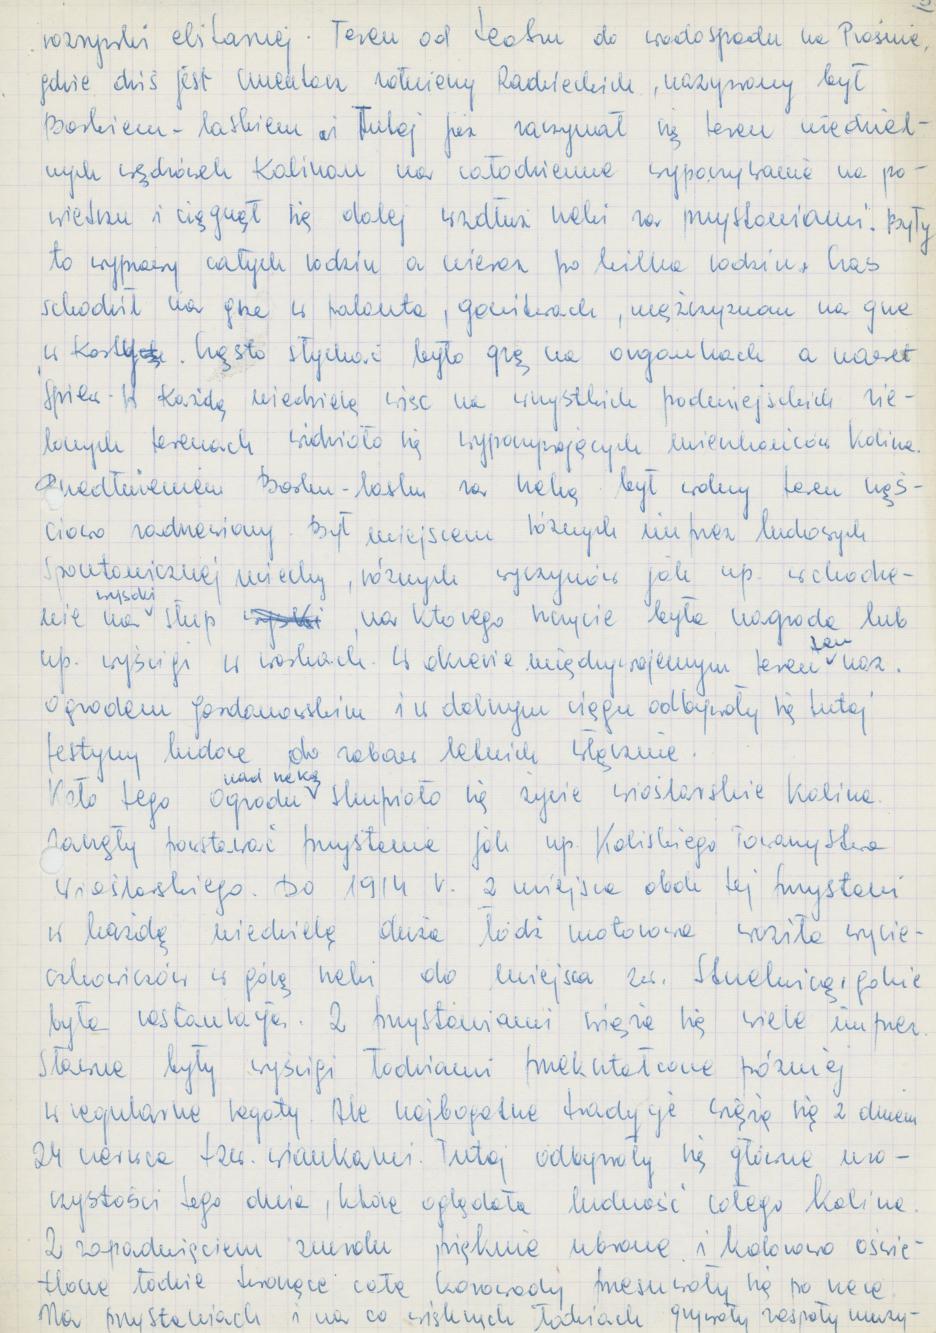 rozrywki elitarnej. Teren od teatru do wodospadu na Prośnie,
gdzie dziś jest cmentarz żołnierzy Radzieckich, nazywany był
Borkiem-laskiem i Tutaj już zaczynał się teren niedziel-
nych wędrówek Kaliszan na całodzienne wypoczywanie na po-
wietrzu i ciągnął się dalej wzdłuż rzeki za przystaniami. Były
to wyprawy całych rodzin a nieraz po kilka rodzin. Czas
schodził na grze w palanta, gonitwach, mężczyznom na grze
w karty. Często słychać było grę na organkach a nawet
śpiew. W każdą niedzielę więc na wszystkich podmiejskich zie-
lonych terenach widziało się wypoczywających mieszkańców Kalisza.
Przedłużeniem Borku-lasku za rzeką był wolny teren częś-
ciowo zadrzewiony. Był miejscem różnych imprez ludowych
spontanicznej uciechy, różnych wyczynów jak np. wchodze-
nie na wysoki słup, na którego szczycie była nagroda lub
np. wyścigi w workach. W okresie międzywojennym teren ten naz.
Ogrodem Jordanowskim i w dalszym ciągu odbywały się tutaj
festyny ludowe do zabaw letnich włącznie.
Koło tego Ogrodu nad rzeką skupiało się życie wioślarskie Kalisza.
Zaczęły powstawać przystanie jak np. Kaliskiego Towarzystwa
Wioślarskiego. Do 1914 r. z miejsca obok tej przystani
w każdą niedzielę duża łódź motorowa woziła wycie-
czkowiczów w górę rzeki do miejsca zw. Strzelnicą, gdzie
była restauracja. Z przystaniami wiąże się wiele imprez.
Sławne były wyścigi łodziami przekształcone później
w regularne regaty. Ale najbogatsze tradycje wiążą się z dniem
24 czerwca, tzw. wiankami. Tutaj odbywały się główne uro-
czystości tego dnia, które oglądała ludność całego Kalisza.
Z zapadnięciem zmroku pięknie ubrane i kolorowo oświe-
tlone łodzie tworzące całe korowody przesuwały się po rzece.
Na przystaniach i na co większych łodziach grywały zespoły muzy-